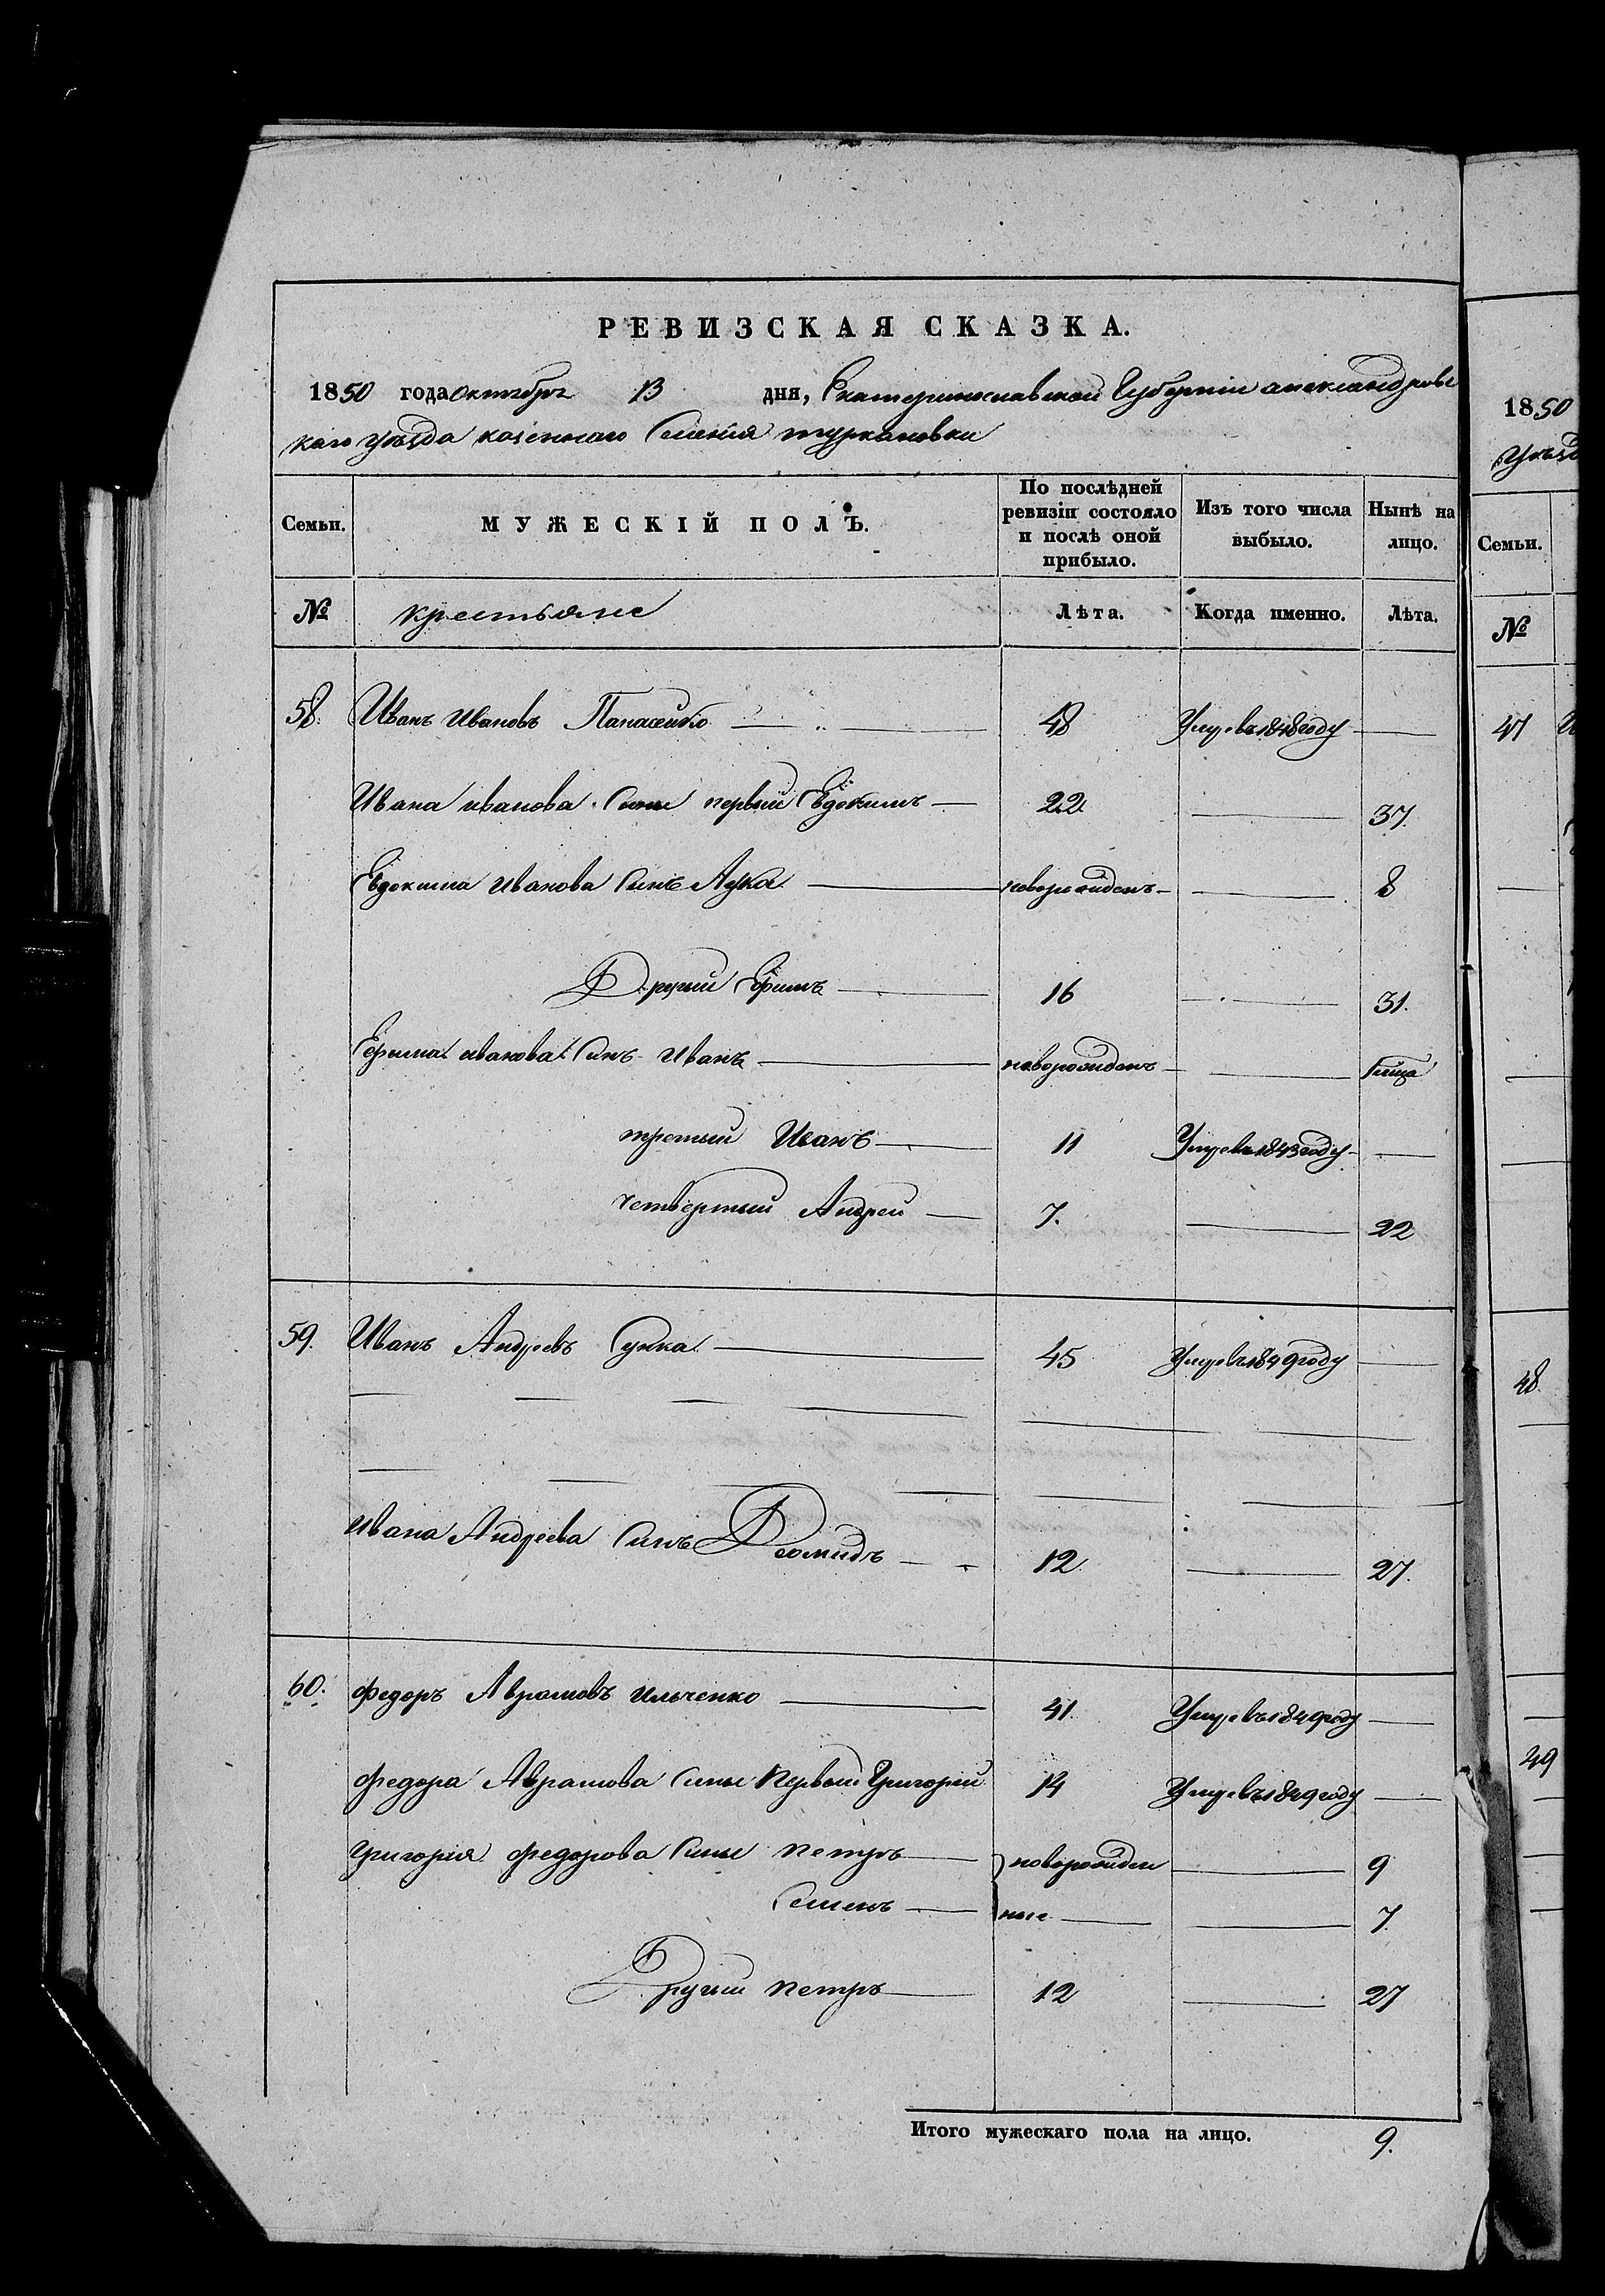 РЕВИЗСКАЯ СКАЗКА.
1850 года октября 13 дня, Екатеринославской Губернии александровс
каго уѣзда казеннаго Селения туркановки
Семьи. МУЖЕСКІЙ ПОЛЪ. По послѣдней ревизіи состояло и послѣ оной прибыло. Изъ того числа выбыло. Нынѣ на лицо.
№ крестьяне Лѣта. Когда именно. Лѣта.
58. Иванъ Ивановъ Панасенко 48 Умре въ 1848 году
Ивана иванова Сыны первый Евдокимъ 22 37.
Евдокима Иванова Синъ Лука новорожденъ 8
Другий Ефимъ 16 31.
Ефима иванова Синъ Иванъ новорожденъ
третий Иванъ 11 Умре въ 1843 году
четвертый Андрей 7. 22
59. Иванъ Андреевъ Сушка 45 Умре въ 1849 году
Ивана Андреева Синъ Деомидъ 12. 27.
60. Федоръ Аврамовъ Ильченко 41. Умре въ 1849 году
Федора Аврамова Сины Первый Григорий 14 Умре въ 1849 году
Григория Федорова Сины Петръ новорожден 9
Семенъ ные 7.
Другий Петръ 12 27
Итого мужескаго пола на лицо. 9.
1850
Уѣзд
Семьи.
№
47
48
49